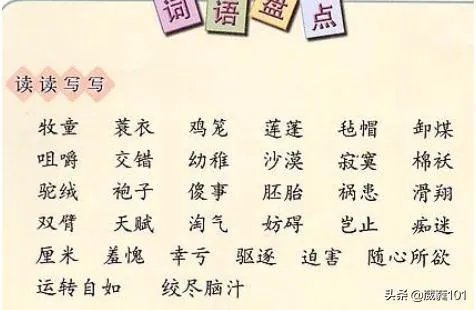 词语盘点
读读写写
牧童 蓑衣 鸡笼 莲蓬 毡帽 卸煤
咀嚼 交错 幼稚 沙漠 寂寞 棉袄
驼绒 袍子 傻事 胚胎 祸患 滑翔
双臂 天赋 淘气 妨碍 岂止 痴迷
厘米 羞愧 幸亏 驱逐 迫害 随心所欲
运转自如 绞尽脑汁
头条 @葳蕤101